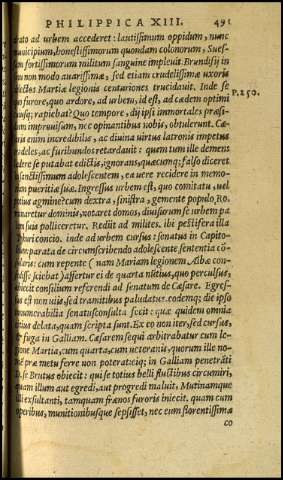 PHILIPPICA XIII. 491
rato ad urbem accederet: lautissimum oppidum, nunc
municipium, honestissimorum quondam colonorum, Sues-
fortissimorum militum sanguine impleuit. Brundisij in
nu non modo auarissimæ, sed etiam crudelissimæ uxoris
delectos Martiæ legionis centuriones trucidauit. Inde se
quo furore, quo ardore, ad urbem, id est, ad cædem optimi
cuiusq; rapiebat? Quo tempore, dij ipsi immortales præsi-
P. 250.
um improuisum, nec opinantibus uobis, obtulerunt. Cæ-
ris enim incredibilis, ac diuina uirtus latronis impetus
crudeles, ac furibundos retardauit: quem tum ille demens
ledere se putabat edictis, ignorans, quæcumq; falso diceret
sanctissimum adolescentem, ea uere recidere in memo-
riam pueritiæ suæ. Ingressus urbem est, quo comitatu, uel
potius agmine? cum dextra, sinistra, gemente populo Ro.
minaretur dominis, notaret domos, diuisurum se urbem pa-
lam suis polliceretur. Redit ad milites. ibi pestifera illa
Tyburi concio. inde ad urbem cursus: senatus in Capito-
lium. parata de circumscribendo adolescente sententia cō-
sularis: cum repente (nam Mariam legionem Albæ con-
sedisse sciebat) affertur ei de quarta nūtius, quo perculsus,
abiecit consilium referendi ad senatum de Cæsare. Egres-
sus est non uijs, sed tramitibus paludatus. eodemq; die ipso
innumerabilia senatusconsulta fecit: quæ quidem omnia
citius delata, quam scripta sunt. Ex eo non iter, sed cursus,
& fuga in Galliam. Cæsarem sequi arbitrabatur cum le-
gione Martia, cum quarta, cum ueteranis, quorum ille no-
men præ metu ferre non poterat: eiq; in Galliam penetrāti
D. se Brutus obiecit: qui se totius belli fluctibus circumiri,
quam illum aut egredi, aut progredi maluit. Mutinamque
illi exultanti, tamquam frænos furoris iniecit. quam cum
operibus, munitionibusque sepsisset, nec eum florentissimæ
co